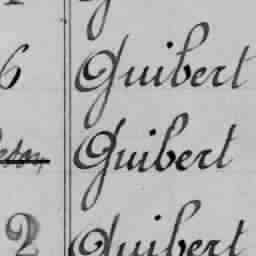 6 Guibert
Guibert
2 Guibert